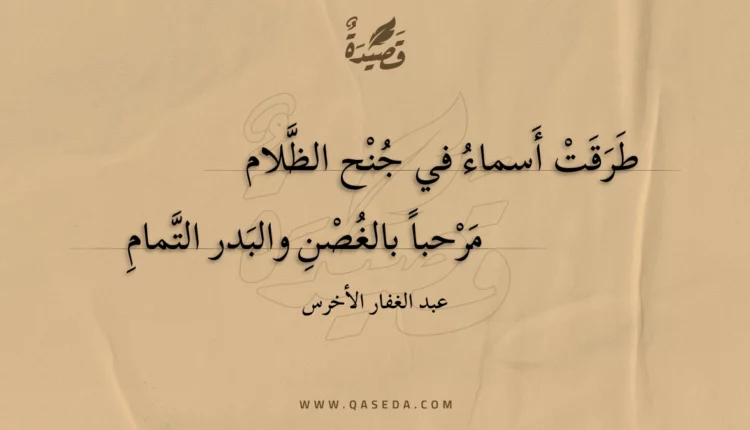 قَصِيدَةٌ
طَرَقَتْ أَسماءُ في جُنْح الظَّلام
مَرْحباً بالغُصْنِ والبَدر التَّمامِ
عبد الغفار الأخرس
WWW.QASEDA.COM